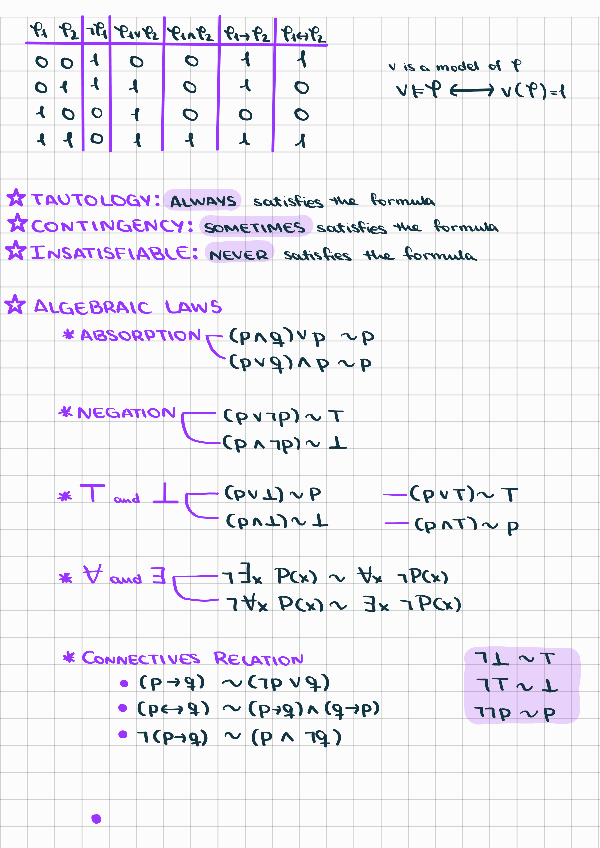 φ₁ φ₂ ¬φ₁ φ₁∨φ₂ φ₁∧φ₂ φ₁→φ₂ φ₁↔φ₂
0 0 1 0 0 1 1
0 1 1 1 0 1 0
1 0 0 1 0 0 0
1 1 0 1 1 1 1
v is a model of φ
v⊨φ ⟷ v(φ)=1
☆ TAUTOLOGY: ALWAYS satisfies the formula
☆ CONTINGENCY: SOMETIMES satisfies the formula
☆ INSATISFIABLE: NEVER satisfies the formula
☆ ALGEBRAIC LAWS
* ABSORPTION (p∧q)∨p ~p
(p∨q)∧p ~p
* NEGATION (p∨¬p)~ ⊤
(p∧¬p)~ ⊥
* ⊤ and ⊥ (p∨⊥)~ p (p∨⊤)~ ⊤
(p∧⊥)~ ⊥ (p∧⊤)~ p
* ∀ and ∃ ¬∃x P(x) ~ ∀x ¬P(x)
¬∀x P(x) ~ ∃x ¬P(x)
* CONNECTIVES RELATION
• (p→q) ~(¬p∨q)
• (p↔q) ~(p→q)∧(q→p)
• ¬(p→q) ~ (p ∧ ¬q)
¬⊥ ~ ⊤
¬⊤ ~ ⊥
¬¬p ~ p